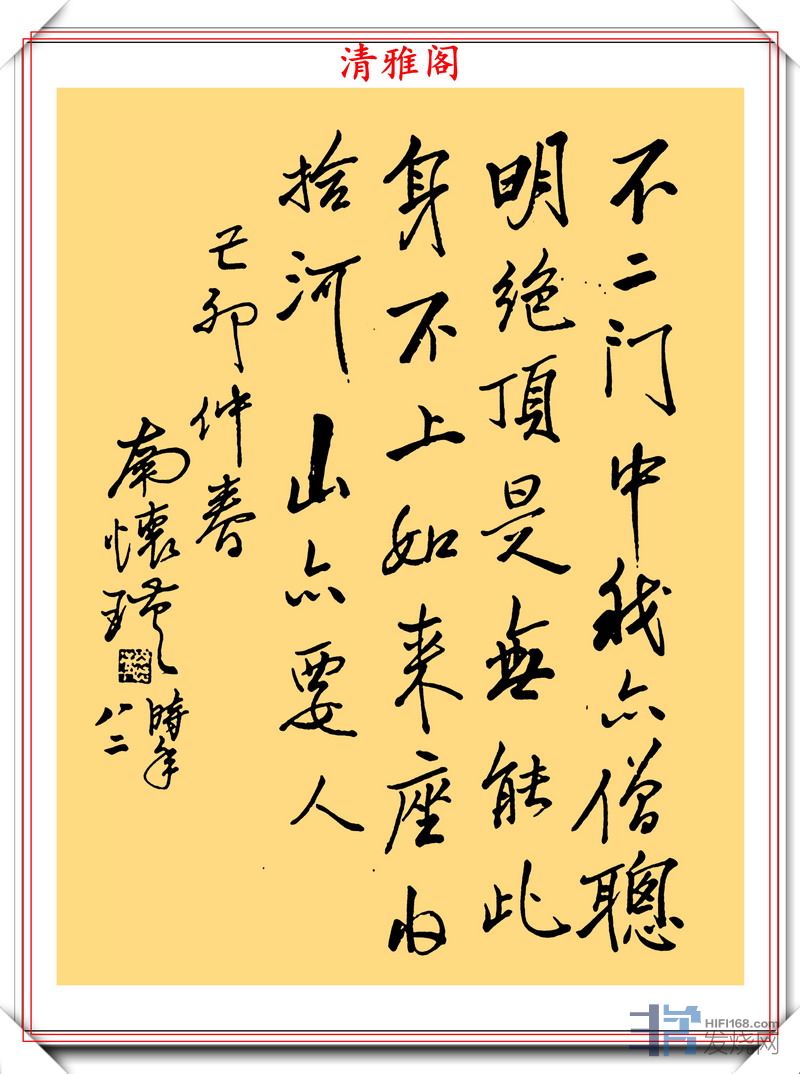 清雅阁
不二门中我亦僧聰
明絶頂是無能此
身不上如来座收
拾河山亦要人
己卯仲春
南懷瑾
時年
八二
HIFI168.com
发烧网